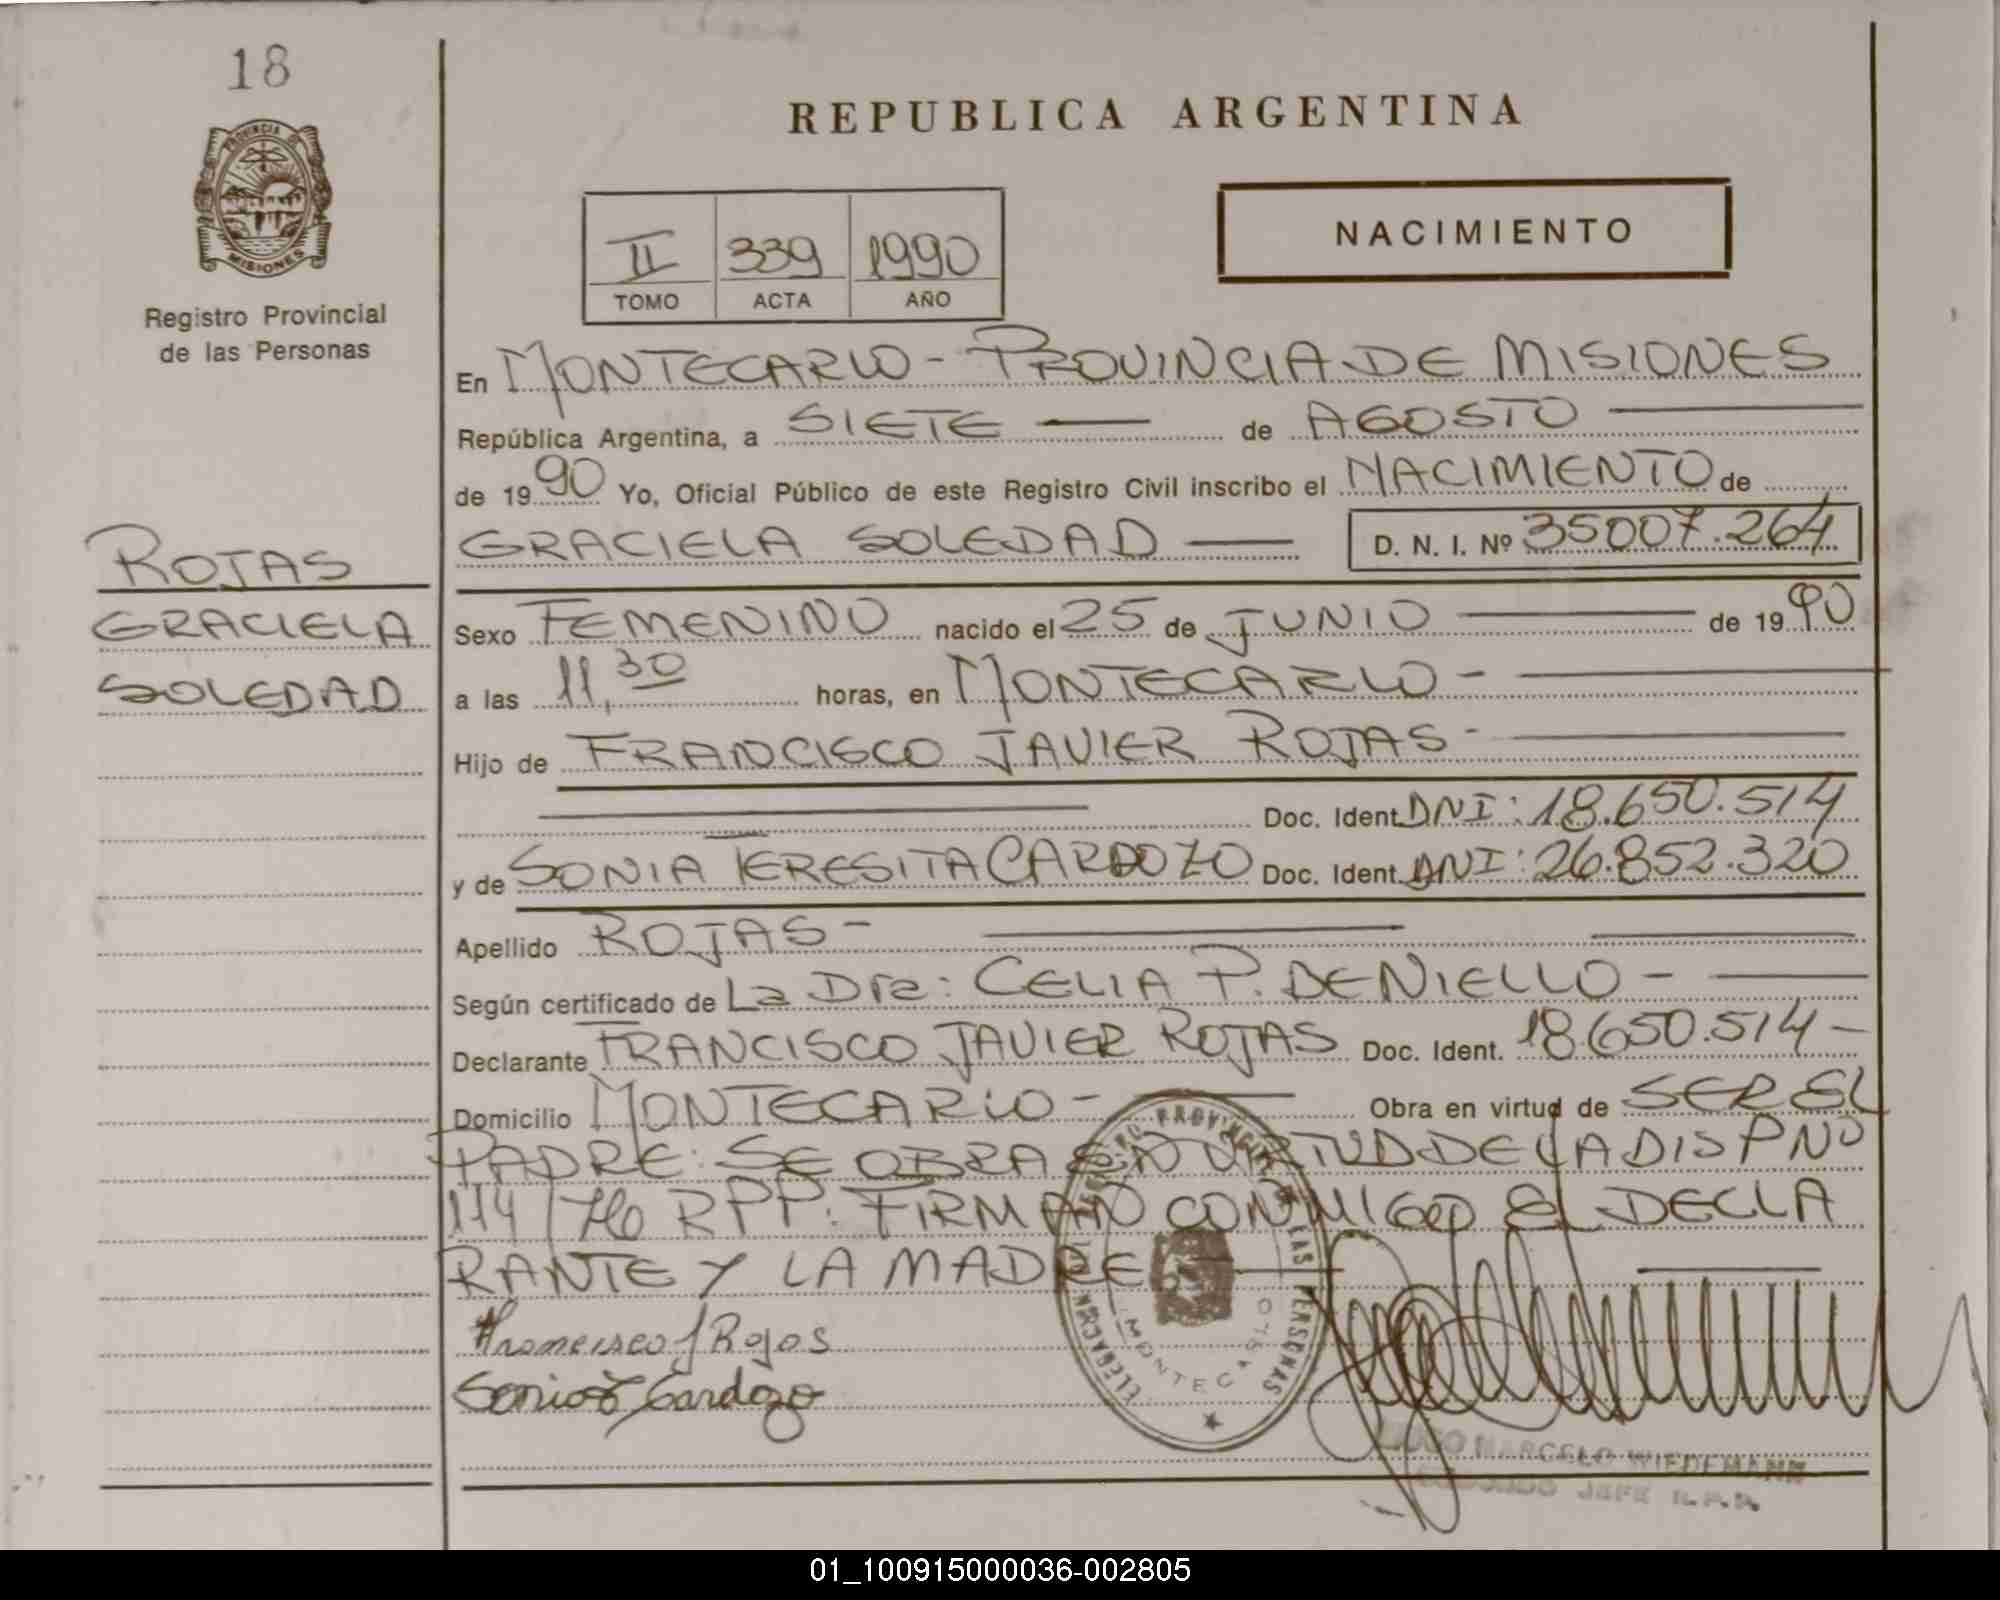 18
PROVINCIA DE
MISIONES
Registro Provincial
de las Personas
REPUBLICA ARGENTINA
II 339 1990
TOMO ACTA AÑO
NACIMIENTO
En MONTECARLO - PROVINCIA DE MISIONES
República Argentina, a SIETE de AGOSTO
de 1990 Yo, Oficial Público de este Registro Civil inscribo el NACIMIENTO de
GRACIELA SOLEDAD D. N. I. Nº 35007.264
ROJAS
GRACIELA
SOLEDAD
Sexo FEMENINO nacido el 25 de JUNIO de 1990
a las 11,30 horas, en MONTECARLO -
Hijo de FRANCISCO JAVIER ROJAS -
Doc. Ident. DNI: 18.650.514
y de SONIA TERESITA CARDOZO Doc. Ident. DNI: 26.852.320
Apellido ROJAS -
Según certificado de La Dra: CELIA P. DE NIELLO -
Declarante FRANCISCO JAVIER ROJAS Doc. Ident. 18.650.514 -
Domicilio MONTECARLO - Obra en virtud de SER EL
PADRE. SE OBRA EN VIRTUD DE LA DISP Nº
114/76 RPP. FIRMAN CONMIGO EL DECLA
RANTE Y LA MADRE
Francisco J Rojas
Sonia T Cardozo
REGISTRO PROVINCIAL DE LAS PERSONAS
MONTECARLO
MARCELO WIEDEMANN
JEFE R.P.P.
01_100915000036-002805